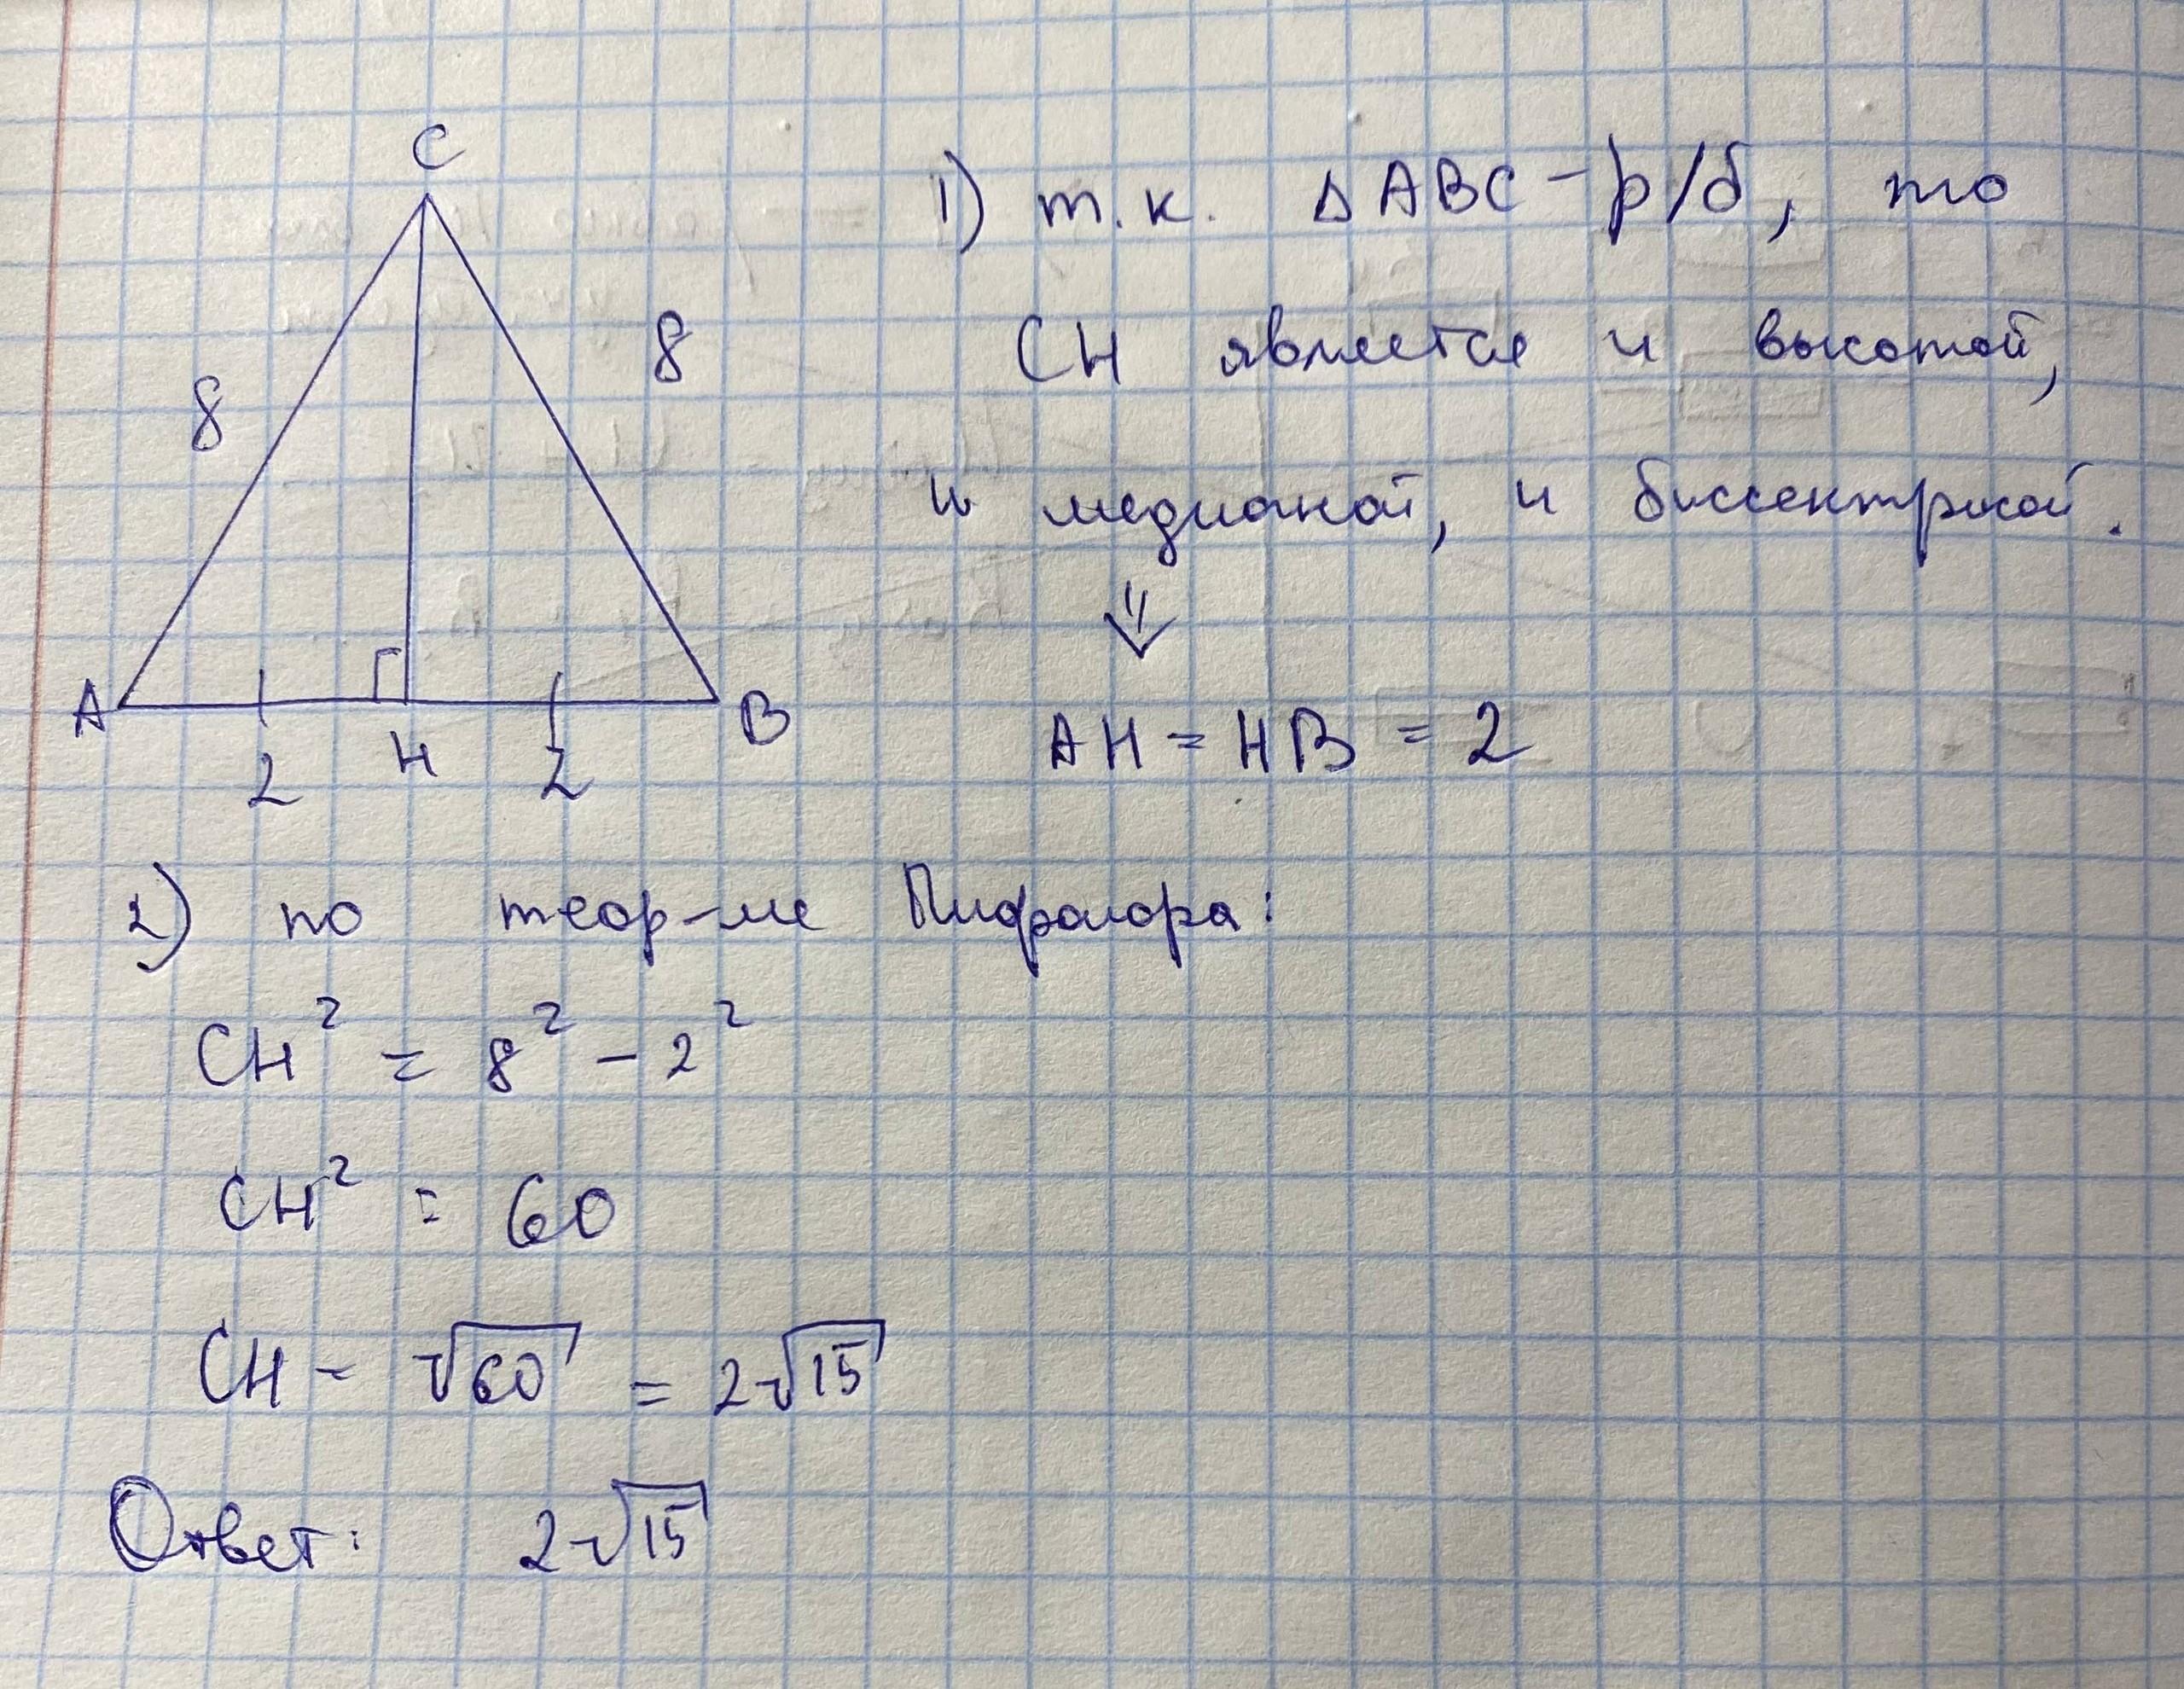 C
8
8
A
H
B
2
2
1) т.к. △ABC - р/б, то
CH является и высотой,
и медианой, и биссектрисой.
⇓
AH = HB = 2
2) по теор-ме Пифагора:
CH² = 8² - 2²
CH² = 60
CH = √60 = 2√15
Ответ: 2√15